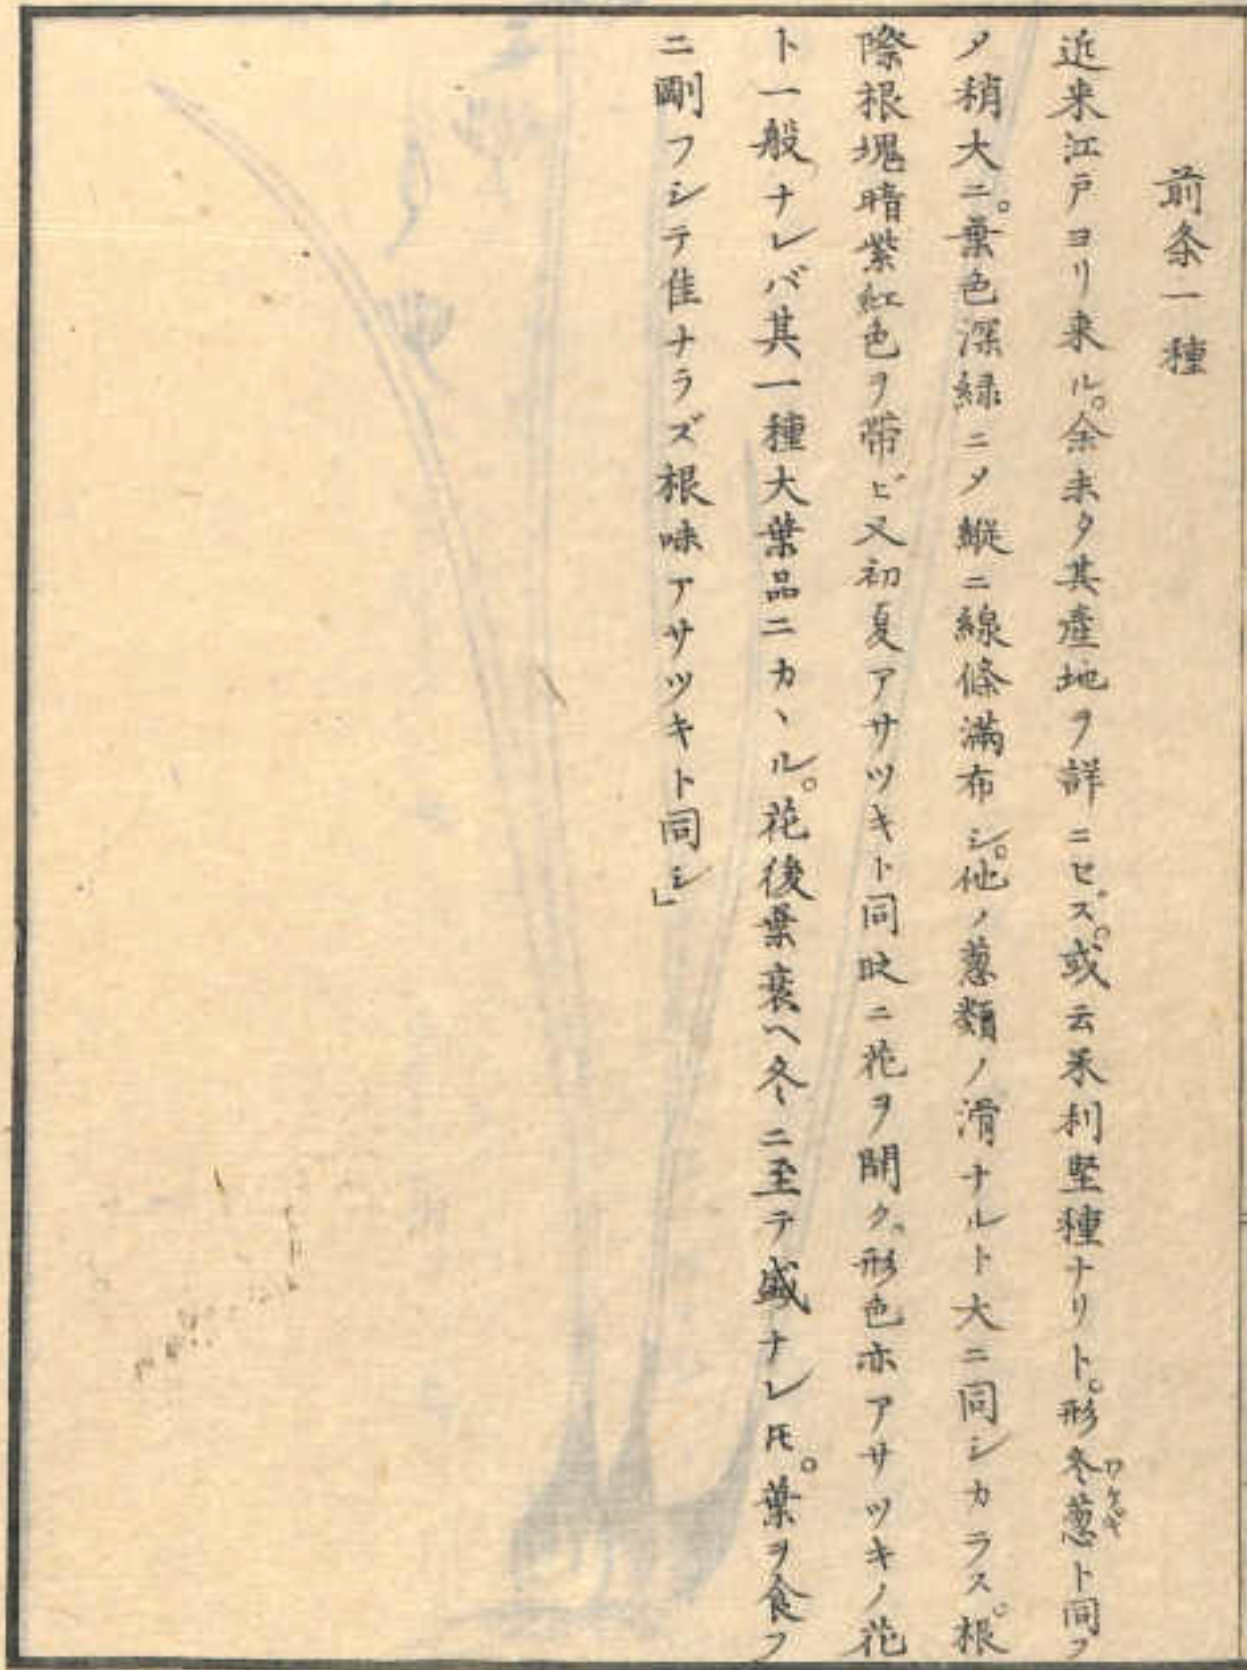 前条一種
近来江戸ヨリ来ル。余未タ其産地ヲ詳ニセズ。或云米利堅種ナリト。形冬葱ワケギト同フ
〆稍大ニ。葉色深緑ニ〆縦ニ線條満布シ。他ノ葱類ノ滑ナルト大ニ同シカラス。根
際根塊暗紫紅色ヲ帯ビ又初夏アサツキト同時ニ花ヲ開ク。形色亦アサツキノ花
ト一般ナレバ其一種大葉品ニカヽル。花後葉衰ヘ冬ニ至テ盛ナレ𪜈。葉ヲ食フ
ニ剛フシテ佳ナラズ根味アサツキト同シ」